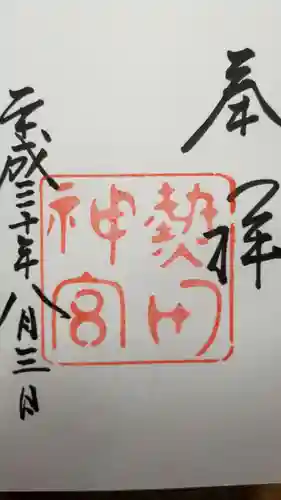 奉拝
熱田
神宮
平成三十年八月三日